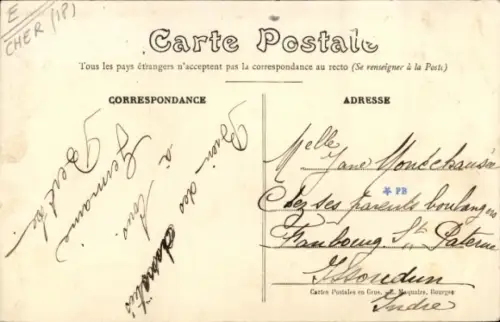 E
CHER (18)
Carte Postale
Tous les pays étrangers n'acceptent pas la correspondance au recto (Se renseigner à la Poste)
CORRESPONDANCE
ADRESSE
Bien des
à
Germaine
Melle
Jane
* PB
Chez ses parents boulangers
Faubourg St Paterne
Issoudun
Cartes Postales en Gros. Bourges
Indre